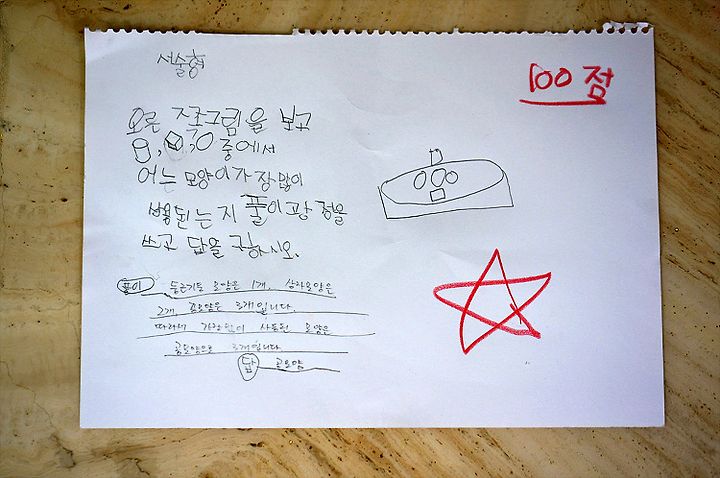 서술형
100점
오른 쪽그림을 보고
, , 중에서
어는 모양이 가장많이
는지 풀이과정을
쓰고 답을 구하시오.
풀이 둥근기둥 모양은 1개, 상자모양은
2개 공모양은 3개입니다.
따라서 가장많이 사용된 모양은
공모양으로 3개입니다
답 공모양